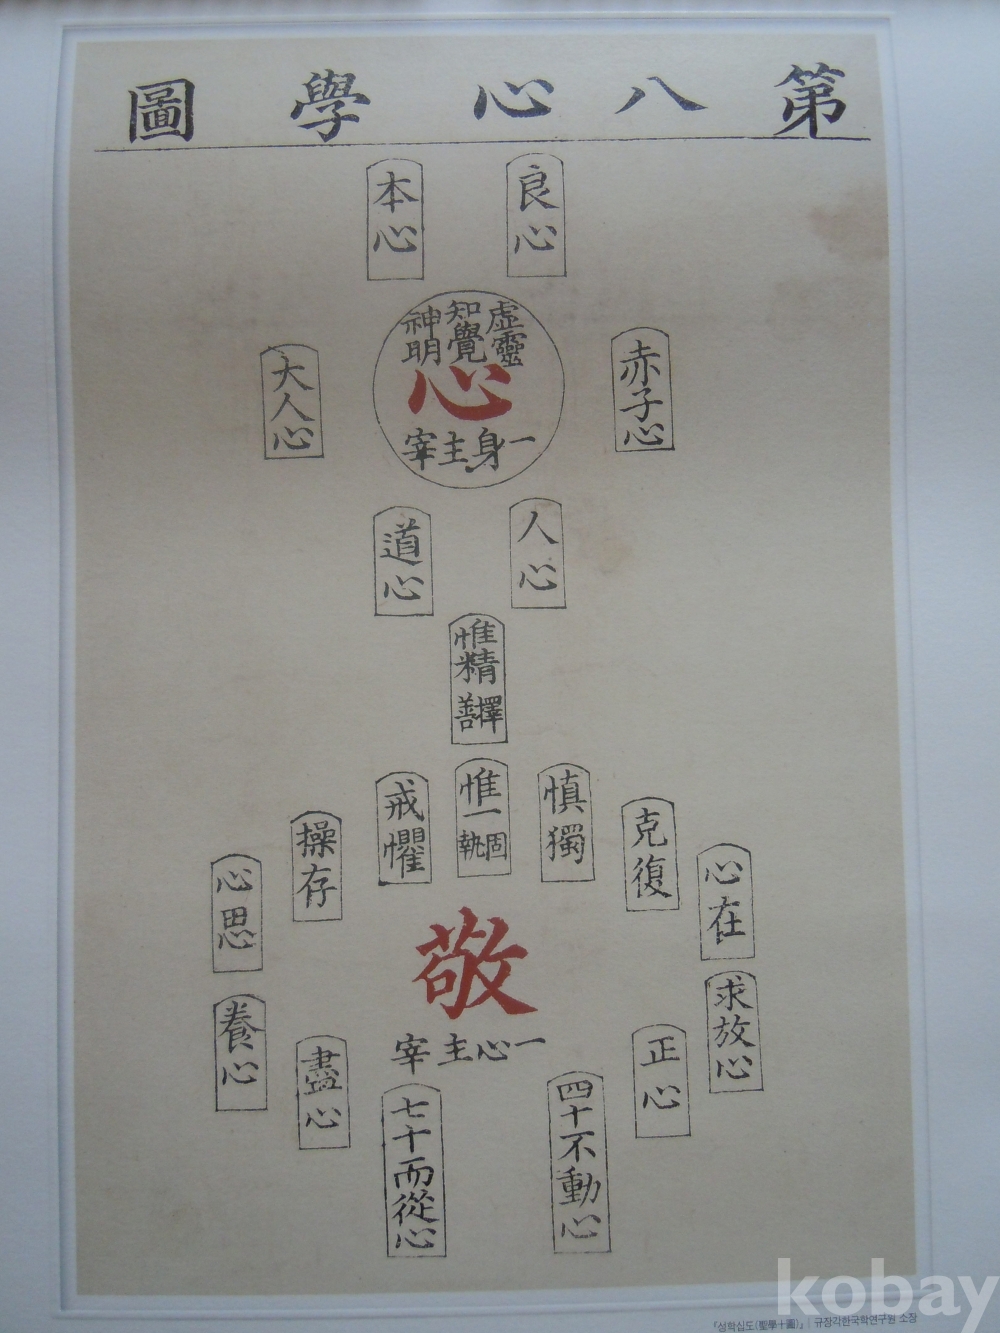 第八心學圖
良心
本心
虛靈
知覺
神明
心
一身主宰
赤子心
大人心
人心
道心
惟精
擇善
惟一
固執
愼獨
戒懼
克復
操存
心在
心思
求放心
養心
敬
一心主宰
正心
盡心
四十不動心
七十而從心
kobay
『성학십도(聖學十圖)』 | 규장각한국학연구원 소장